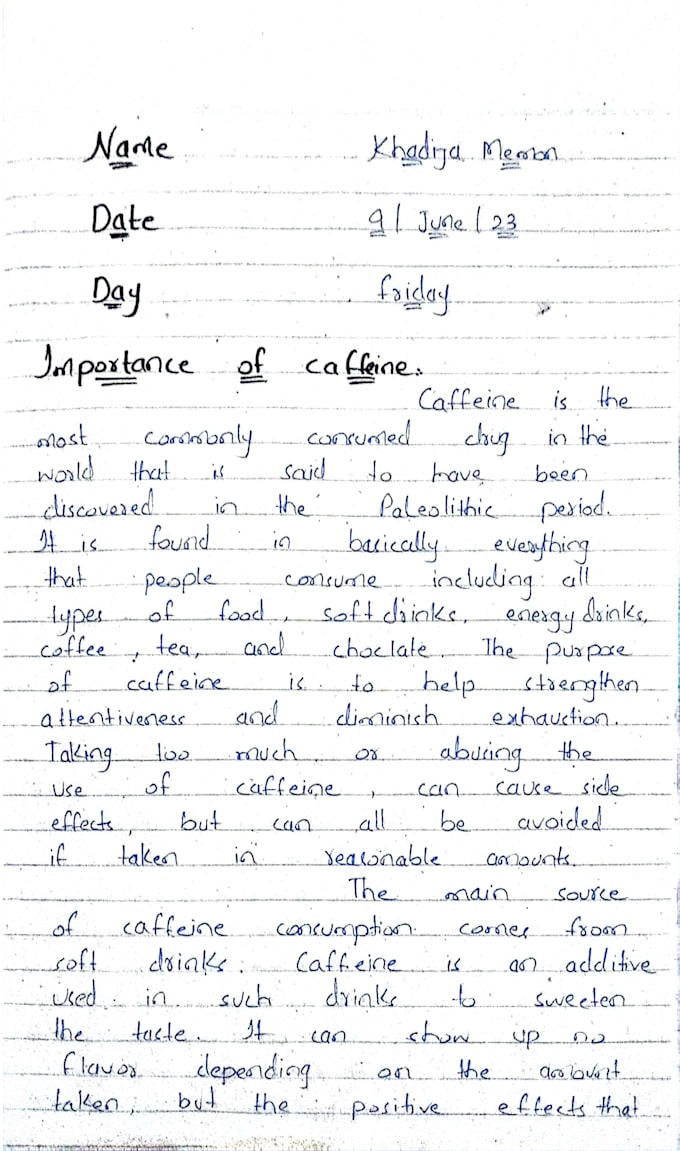 Name Khadija Memon
Date 9 / June / 23
Day friday
Importance of caffeine.
Caffeine is the
most commonly consumed drug in the
world that is said to have been
discovered in the Paleolithic period.
It is found in basically everything
that people consume including all
types of food, soft drinks, energy drinks,
coffee, tea, and choclate. The purpose
of caffeine is to help strengthen
attentiveness and diminish exhaustion.
Taking too much or abusing the
use of caffeine, can cause side
effects, but can all be avoided
if taken in reasonable amounts.
The main source
of caffeine consumption comes from
soft drinks. Caffeine is an additive
used in such drinks to sweeten
the taste. It can show up no
flavor depending on the amount
taken, but the positive effects that